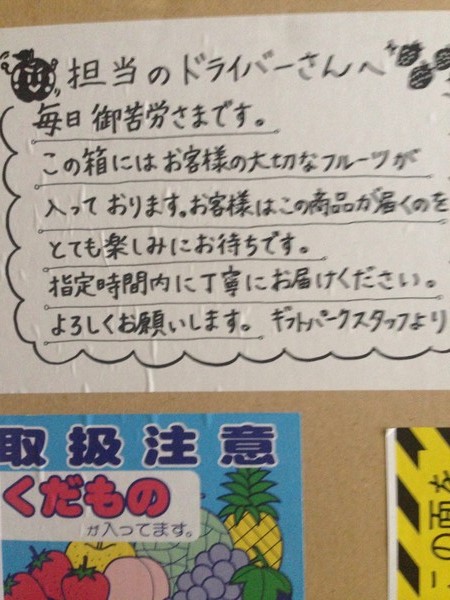 担当のドライバーさんへ
毎日御苦労さまです。
この箱にはお客様の大切なフルーツが
入っております。お客様はこの商品が届くのを
とても楽しみにお待ちです。
指定時間内に丁寧にお届けください。
よろしくお願いします。 ギフトパークスタッフより
取扱注意
くだもの
が入ってます。
この面を